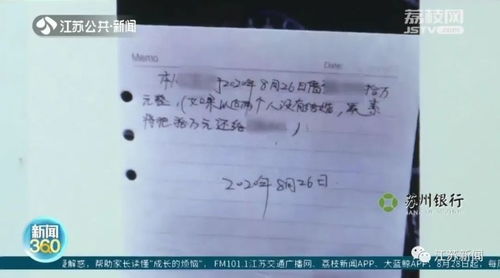 江苏公共·新闻
荔枝网
JSTV.com
Memo
Date:
本人 于2020年8月26日借 拾万
元整,(如果以后两个人没有结婚,
将把拾万元还给 )
2020年8月26日
苏州银行
新闻
360
江苏新闻
疑解惑,帮助家长读懂“成长的烦恼”,FM101.1江苏交通广播网、荔枝新闻APP、大蓝鲸APP,8月28日起,每周